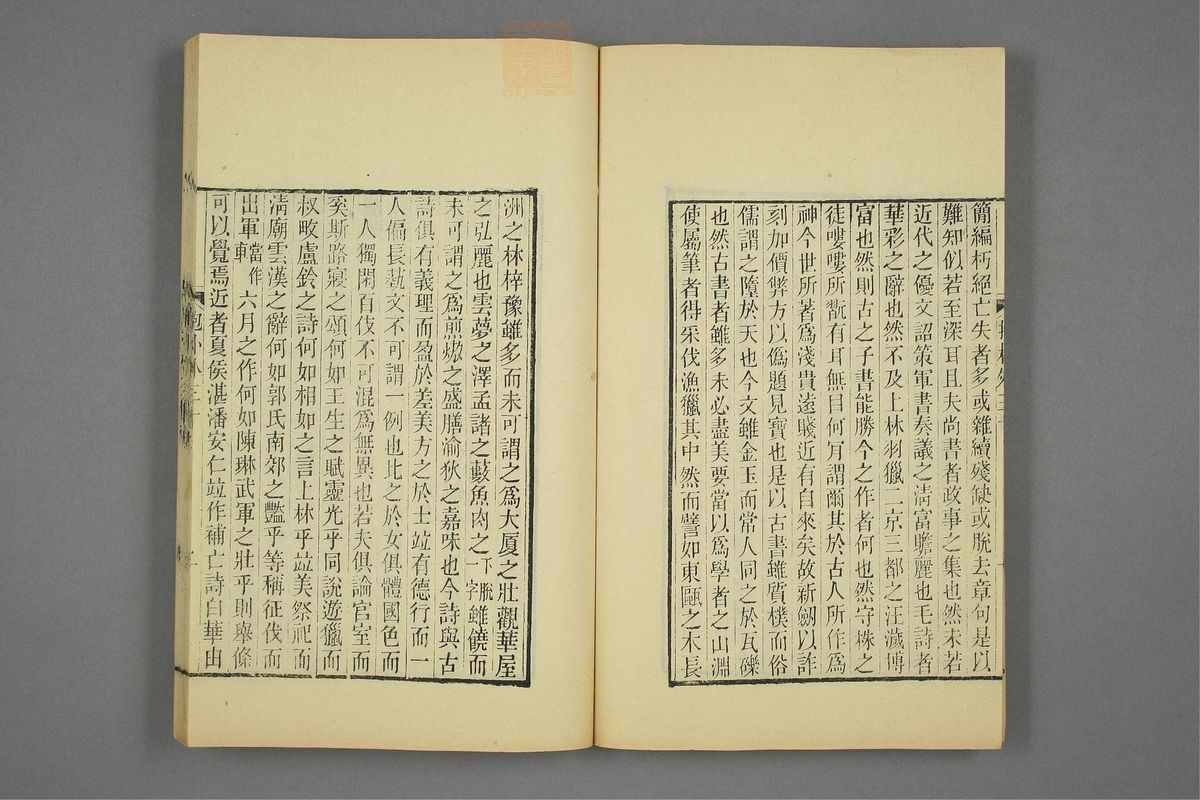 簡編朽絕亡失者多或雜續殘缺或脫去章句是以
難知似若至深耳且夫尚書者政事之集也然未若
近代之優文詔策軍書奏議之淸富贍麗也毛詩者
華彩之辭也然不及上林羽獵二京三都之汪濊博
富也然則古之子書能勝今之作者何也然守株之
徒嘍嘍所翫有耳無目何肎謂爾其於古人所作爲
神今世所著爲淺貴遠賤近有自來矣故新劒以詐
刻加價弊方以僞題見寶也是以古書雖質樸而俗
儒謂之墮於天也今文雖金玉而常人同之於瓦礫
也然古書者雖多未必盡美要當以爲學者之山淵
使屬筆者得采伐漁獵其中然而譬如東甌之木長
洲之林梓豫雖多而未可謂之爲大厦之壯觀華屋
之弘麗也雲夢之澤孟諸之藪魚肉之下脫一字雖饒而
未可謂之爲煎熬之盛膳渝狄之嘉味也今詩與古
詩俱有義理而盈於差美方之於士竝有德行而一
人偏長蓺文不可謂一例也比之於女俱體國色而
一人獨閑百伎不可混爲無異也若夫俱論宮室而
奚斯路寢之頌何如王生之賦靈光乎同說遊獵而
叔畋盧鈴之詩何如相如之言上林乎竝美祭祀而
淸廟雲漢之辭何如郭氏南郊之豔乎等稱征伐而
出軍當作車六月之作何如陳琳武軍之壯乎則舉條
可以覺焉近者夏侯湛潘安仁竝作補亡詩白華由